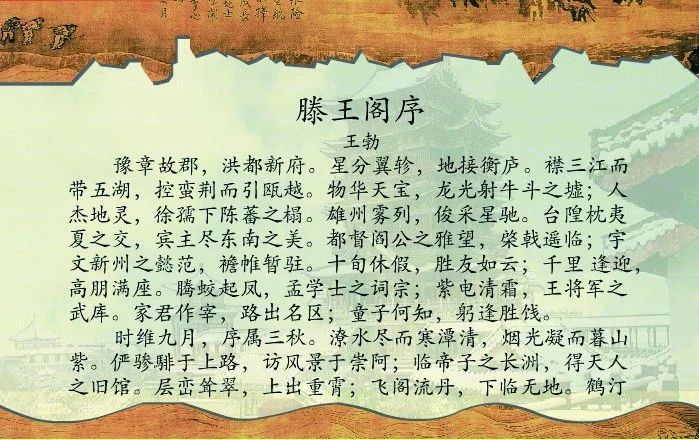 滕王阁序
王勃
豫章故郡，洪都新府。星分翼轸，地接衡庐。襟三江而
带五湖，控蛮荆而引瓯越。物华天宝，龙光射牛斗之墟；人
杰地灵，徐孺下陈蕃之榻。雄州雾列，俊采星驰。台隍枕夷
夏之交，宾主尽东南之美。都督阎公之雅望，棨戟遥临；宇
文新州之懿范，襜帷暂驻。十旬休假，胜友如云；千里 逢迎，
高朋满座。腾蛟起凤，孟学士之词宗；紫电清霜，王将军之
武库。家君作宰，路出名区；童子何知，躬逢胜饯。
时维九月，序属三秋。潦水尽而寒潭清，烟光凝而暮山
紫。俨骖騑于上路，访风景于崇阿；临帝子之长洲，得天人
之旧馆。层峦耸翠，上出重霄；飞阁流丹，下临无地。鹤汀